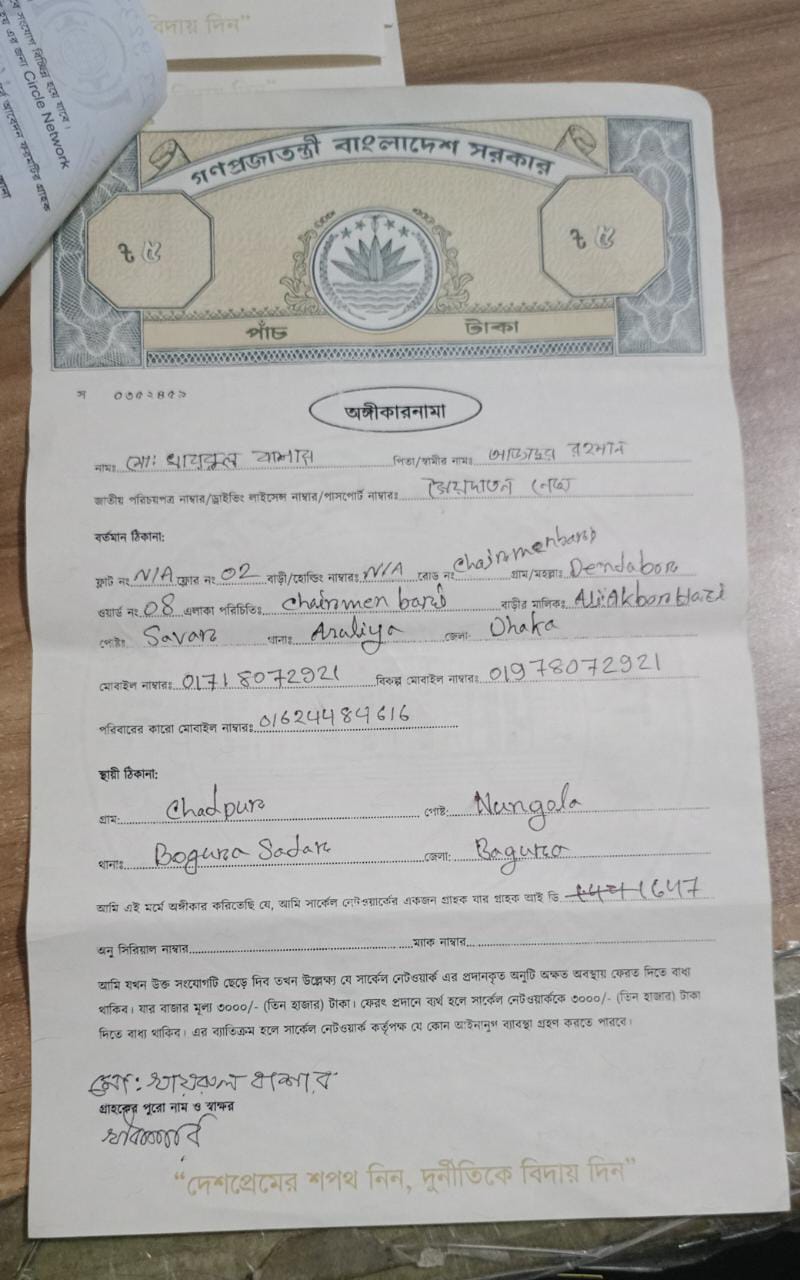 বিদায় দিন"
সংযোগ বিচ্ছিন্ন হয়ে যাবে।
এর জন্য Circle Network
গণপ্রজাতন্ত্রী বাংলাদেশ সরকার
৳ ৫
৳ ৫
পাঁচ টাকা
স ০৩৫২৪৫৯
অঙ্গীকারনামা
নামঃ মোঃ খায়রুল বাশার পিতা/স্বামীর নামঃ রহমান
জাতীয় পরিচয়পত্র নাম্বার/ড্রাইভিং লাইসেন্স নাম্বার/পাসপোর্ট নাম্বারঃ
বর্তমান ঠিকানা:
ফ্লাট নং N/A ফ্লোর নং 02 বাড়ী/হোল্ডিং নাম্বারঃ N/A রোড নং Chairmenbari গ্রাম/মহল্লাঃ Dendabor
ওয়ার্ড নং 08 এলাকা পরিচিতিঃ Chairmen bari বাড়ীর মালিকঃ Ali Akbor Hazi
পোষ্টঃ Savar থানাঃ Asuliya জেলা: Dhaka
মোবাইল নাম্বারঃ 01718072921 বিকল্প মোবাইল নাম্বারঃ 01978072921
পরিবারের কারো মোবাইল নাম্বারঃ 01624484616
স্থায়ী ঠিকানা:
গ্রাম: Chadpur পোষ্ট: Nungola
থানাঃ Bogura Sadar জেলা: Bogura
আমি এই মর্মে অঙ্গীকার করিতেছি যে, আমি সার্কেল নেটওয়ার্কের একজন গ্রাহক যার গ্রাহক আই ডি 1647
অনু সিরিয়াল নাম্বার ম্যাক নাম্বার
আমি যখন উক্ত সংযোগটি ছেড়ে দিব তখন উল্লেক্ষ্য যে সার্কেল নেটওয়ার্ক এর প্রদানকৃত অনুটি অক্ষত অবস্থায় ফেরত দিতে বাধ্য
থাকিব। যার বাজার মূল্য ৩০০০/- (তিন হাজার) টাকা। ফেরৎ প্রদানে ব্যর্থ হলে সার্কেল নেটওয়ার্ককে ৩০০০/- (তিন হাজার) টাকা
দিতে বাধ্য থাকিব। এর ব্যাতিক্রম হলে সার্কেল নেটওয়ার্ক কর্তৃপক্ষ যে কোন আইনানুগ ব্যাবস্থা গ্রহণ করতে পারবে।
মো: খায়রুল বাশার
গ্রাহকের পুরো নাম ও স্বাক্ষর
"দেশপ্রেমের শপথ নিন, দুর্নীতিকে বিদায় দিন"